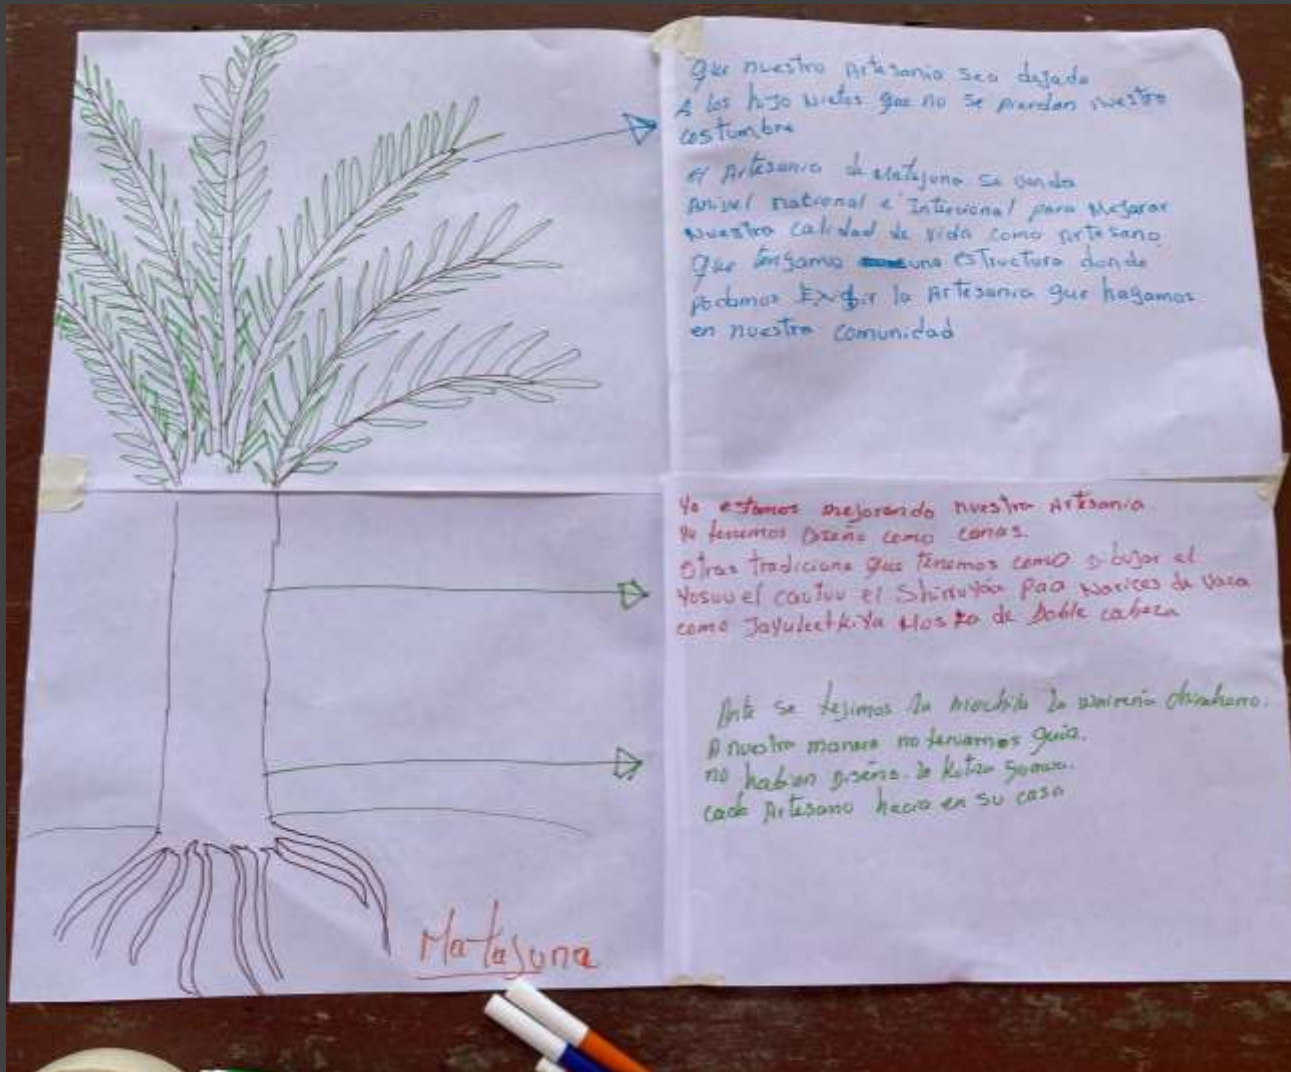 Que nuestra Artesania sea dejada
A los hijo Nietos que no se pierdan nuestro
costumbre
el Artesania de Matajuna se venda
Anivel national e Intercional para Mejorar
Nuestra calidad de vida como artesano
Que tengamo una estructura donde
podamos Exibir la Artesania que hagamos
en nuestra comunidad
Ya estamos mejorando nuestra Artesania
Ya tenemos Diseño como
Otras tradicione que tenemos como dibujar el
Yosuu el cautuu el Paa Narices de Vaca
como Moska de Doble cabeza
Ante se tejimos la mochila la
A nuestra manera no teniamos guia.
no habian Diseño. la
cada Artesano hacia en su casa
Matajuna